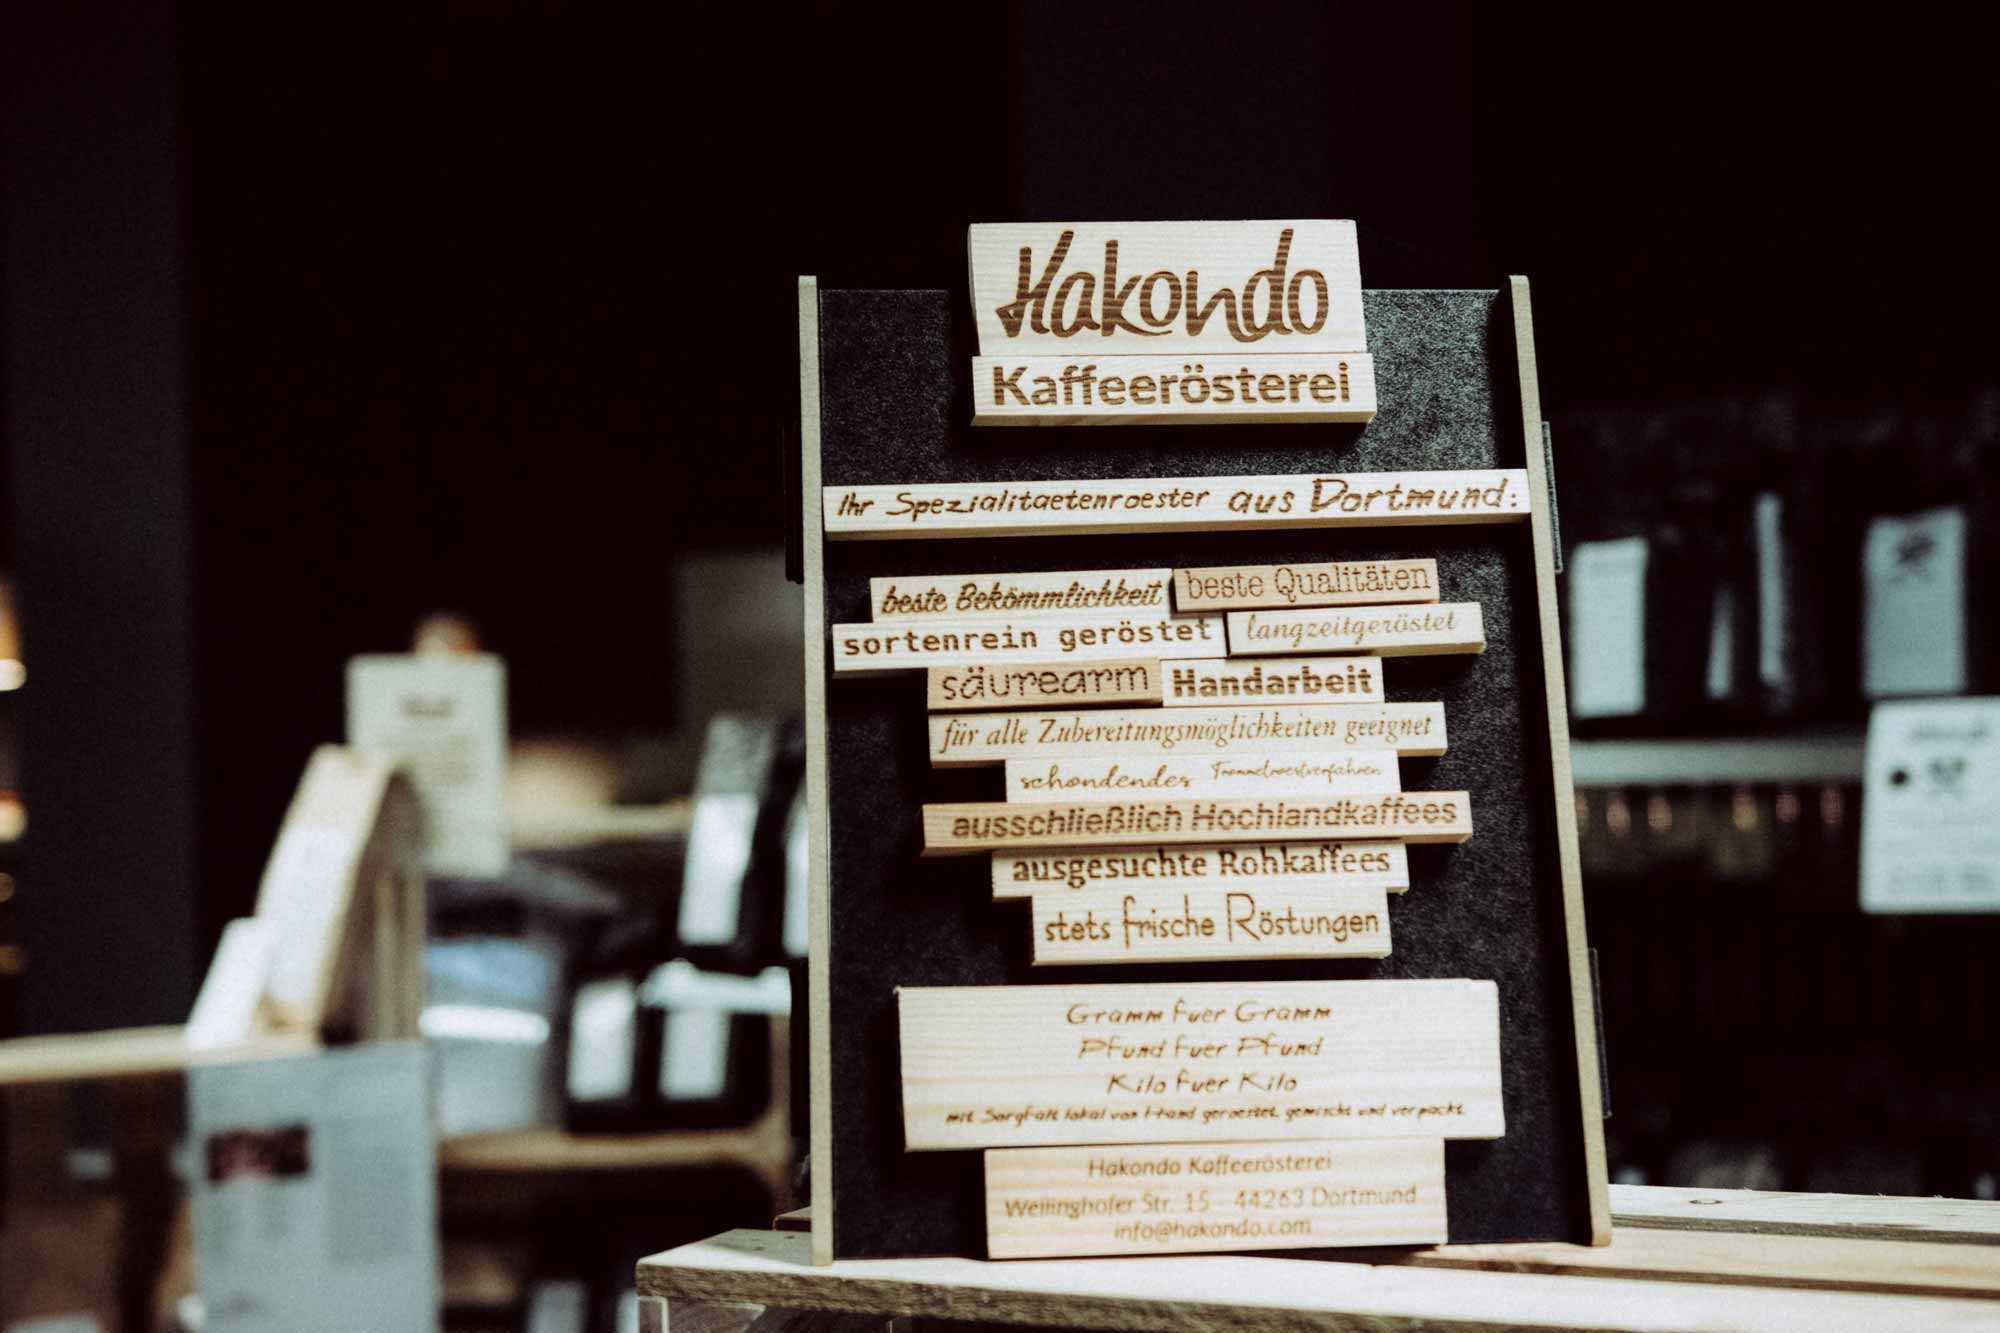 Hakondo
Kaffeerösterei
Ihr Spezialitaetenroester aus Dortmund:
beste Bekömmlichkeit beste Qualitäten
sortenrein geröstet langzeitgeröstet
säurearm Handarbeit
für alle Zubereitungsmöglichkeiten geeignet
schondendes Trommelroestverfahren
ausschließlich Hochlandkaffees
ausgesuchte Rohkaffees
stets frische Röstungen
Gramm fuer Gramm
Pfund fuer Pfund
Kilo fuer Kilo
mit Sorgfalt lokal von Hand geroestet, gemischt und verpackt.
Hakondo Kaffeerösterei
Wellinghofer Str. 15 44263 Dortmund
info@hakondo.com